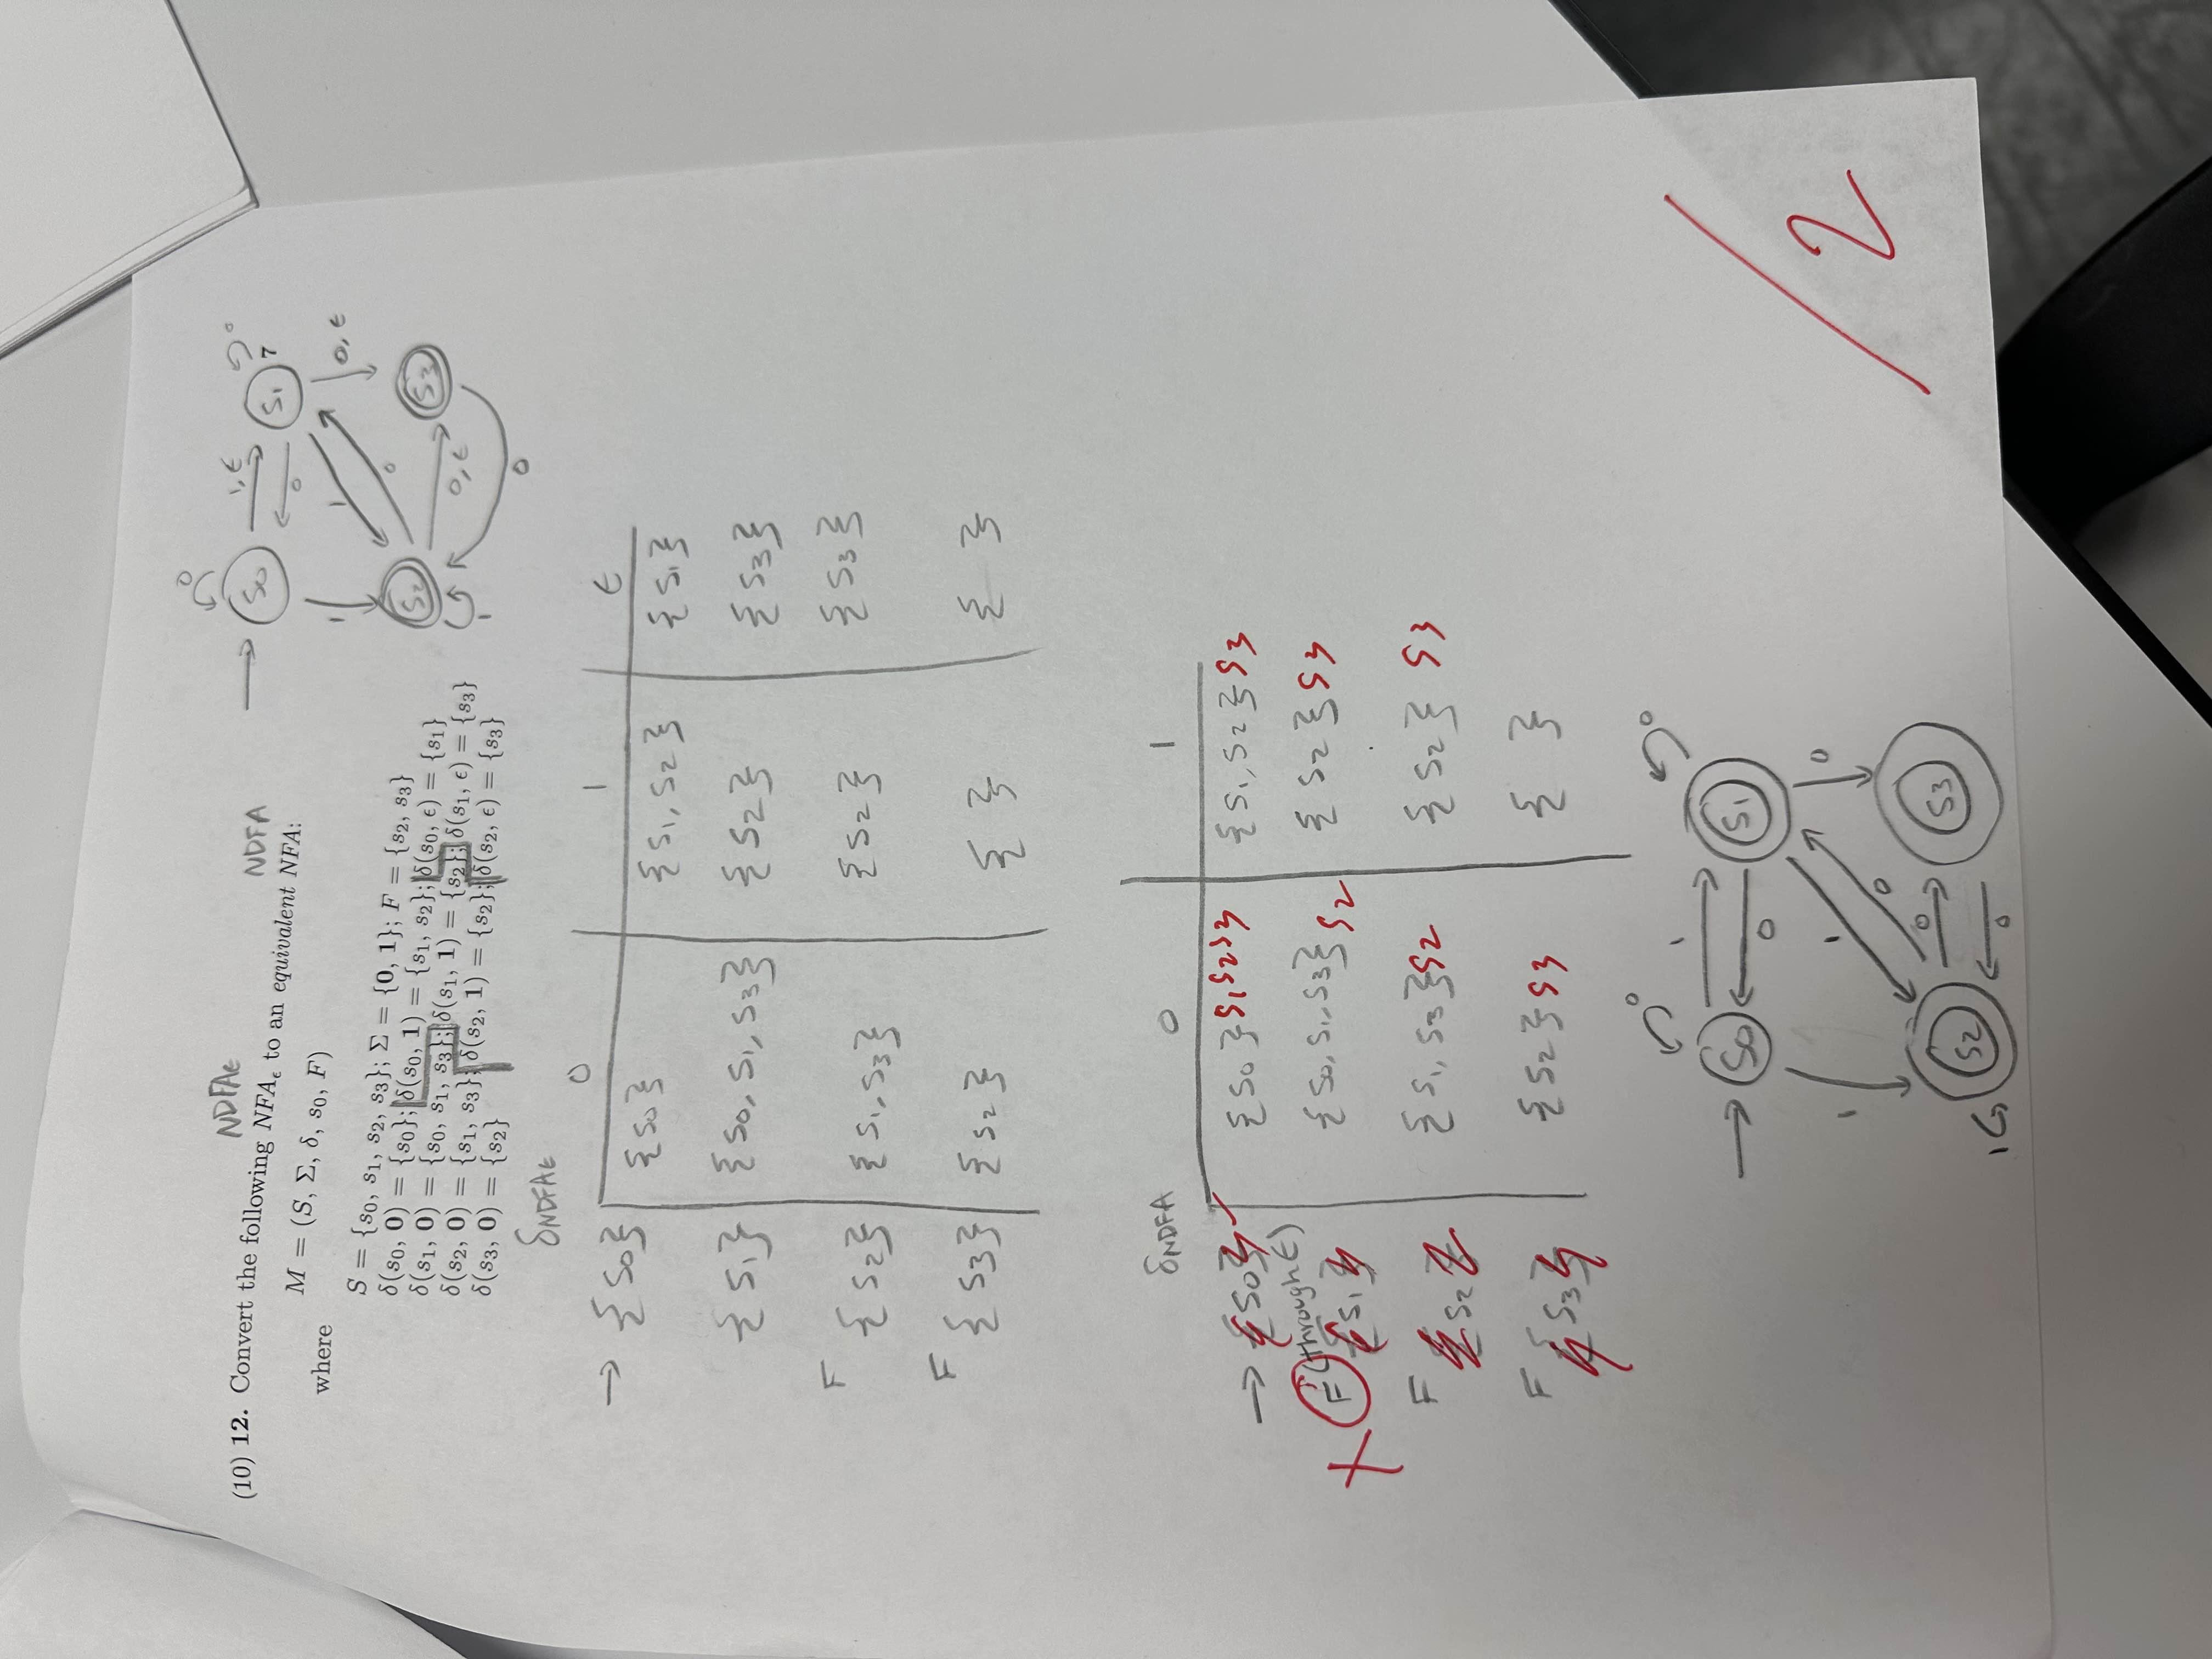 NDFAε NDFA
(10) 12. Convert the following NFAϵ to an equivalent NFA:
M = (S, Σ, δ, s0, F)
where
S = {s0, s1, s2, s3}; Σ = {0, 1}; F = {s2, s3}
δ(s0, 0) = {s0}; δ(s0, 1) = {s1, s2}; δ(s0, ϵ) = {s1}
δ(s1, 0) = {s0, s1, s3}; δ(s1, 1) = {s2}; δ(s1, ϵ) = {s3}
δ(s2, 0) = {s1, s3}; δ(s2, 1) = {s2}; δ(s2, ϵ) = {s3}
δ(s3, 0) = {s2}
7
0
S0 1, ε 0 S1 0
1 1 0 0, ε
1 S2 0, ε S3
0
δNDFAε 0 1 ε
→ {S0} {S0} {S1, S2} {S1}
{S1} {S0, S1, S3} {S2} {S3}
F {S2} {S1, S3} {S2} {S3}
F {S3} {S2} { } { }
δNDFA 0 1
→ {S0} {S0} S1S2S3 {S1, S2} S3
X F (through ε) {S1} {S0, S1, S3} S2 {S2} S3
F {S2} {S1, S3} S2 {S2} S3
F {S3} {S2} S3 { }
0
S0 1 0 S1 0
1 1 0 0
1 S2 0 S3
0
/2